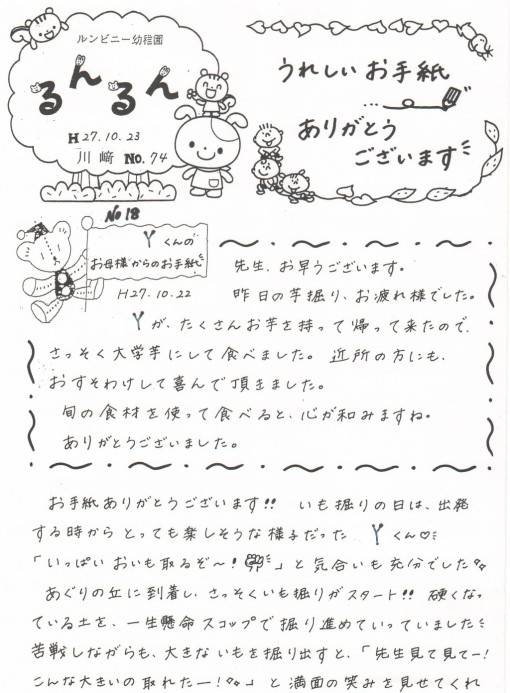 ルンビニー幼稚園
るんるん
H27.10.23
川﨑 No.74
うれしいお手紙
ありがとう
ございます
No 18
Yくんの
お母様からのお手紙
H27.10.22
先生、お早うございます。
昨日の芋掘り、お疲れ様でした。
Yが、たくさんお芋を持って帰って来たので、
さっそく大学芋にして食べました。近所の方にも、
おすそわけして喜んで頂きました。
旬の食材を使って食べると、心が和みますね。
ありがとうございました。
お手紙ありがとうございます!! いも掘りの日は、出発
する時からとっても楽しそうな様子だったYくん♡
「いっぱいおいも取るぞ〜!」と気合いも充分でした
あぐりの丘に到着し、さっそくいも掘りがスタート!! 硬くなっ
ている土を、一生懸命スコップで掘り進めていっていました
苦戦しながらも、大きないもを掘り出すと、「先生見て見てー!
こんな大きいの取れたー!」と満面の笑みを見せてくれ